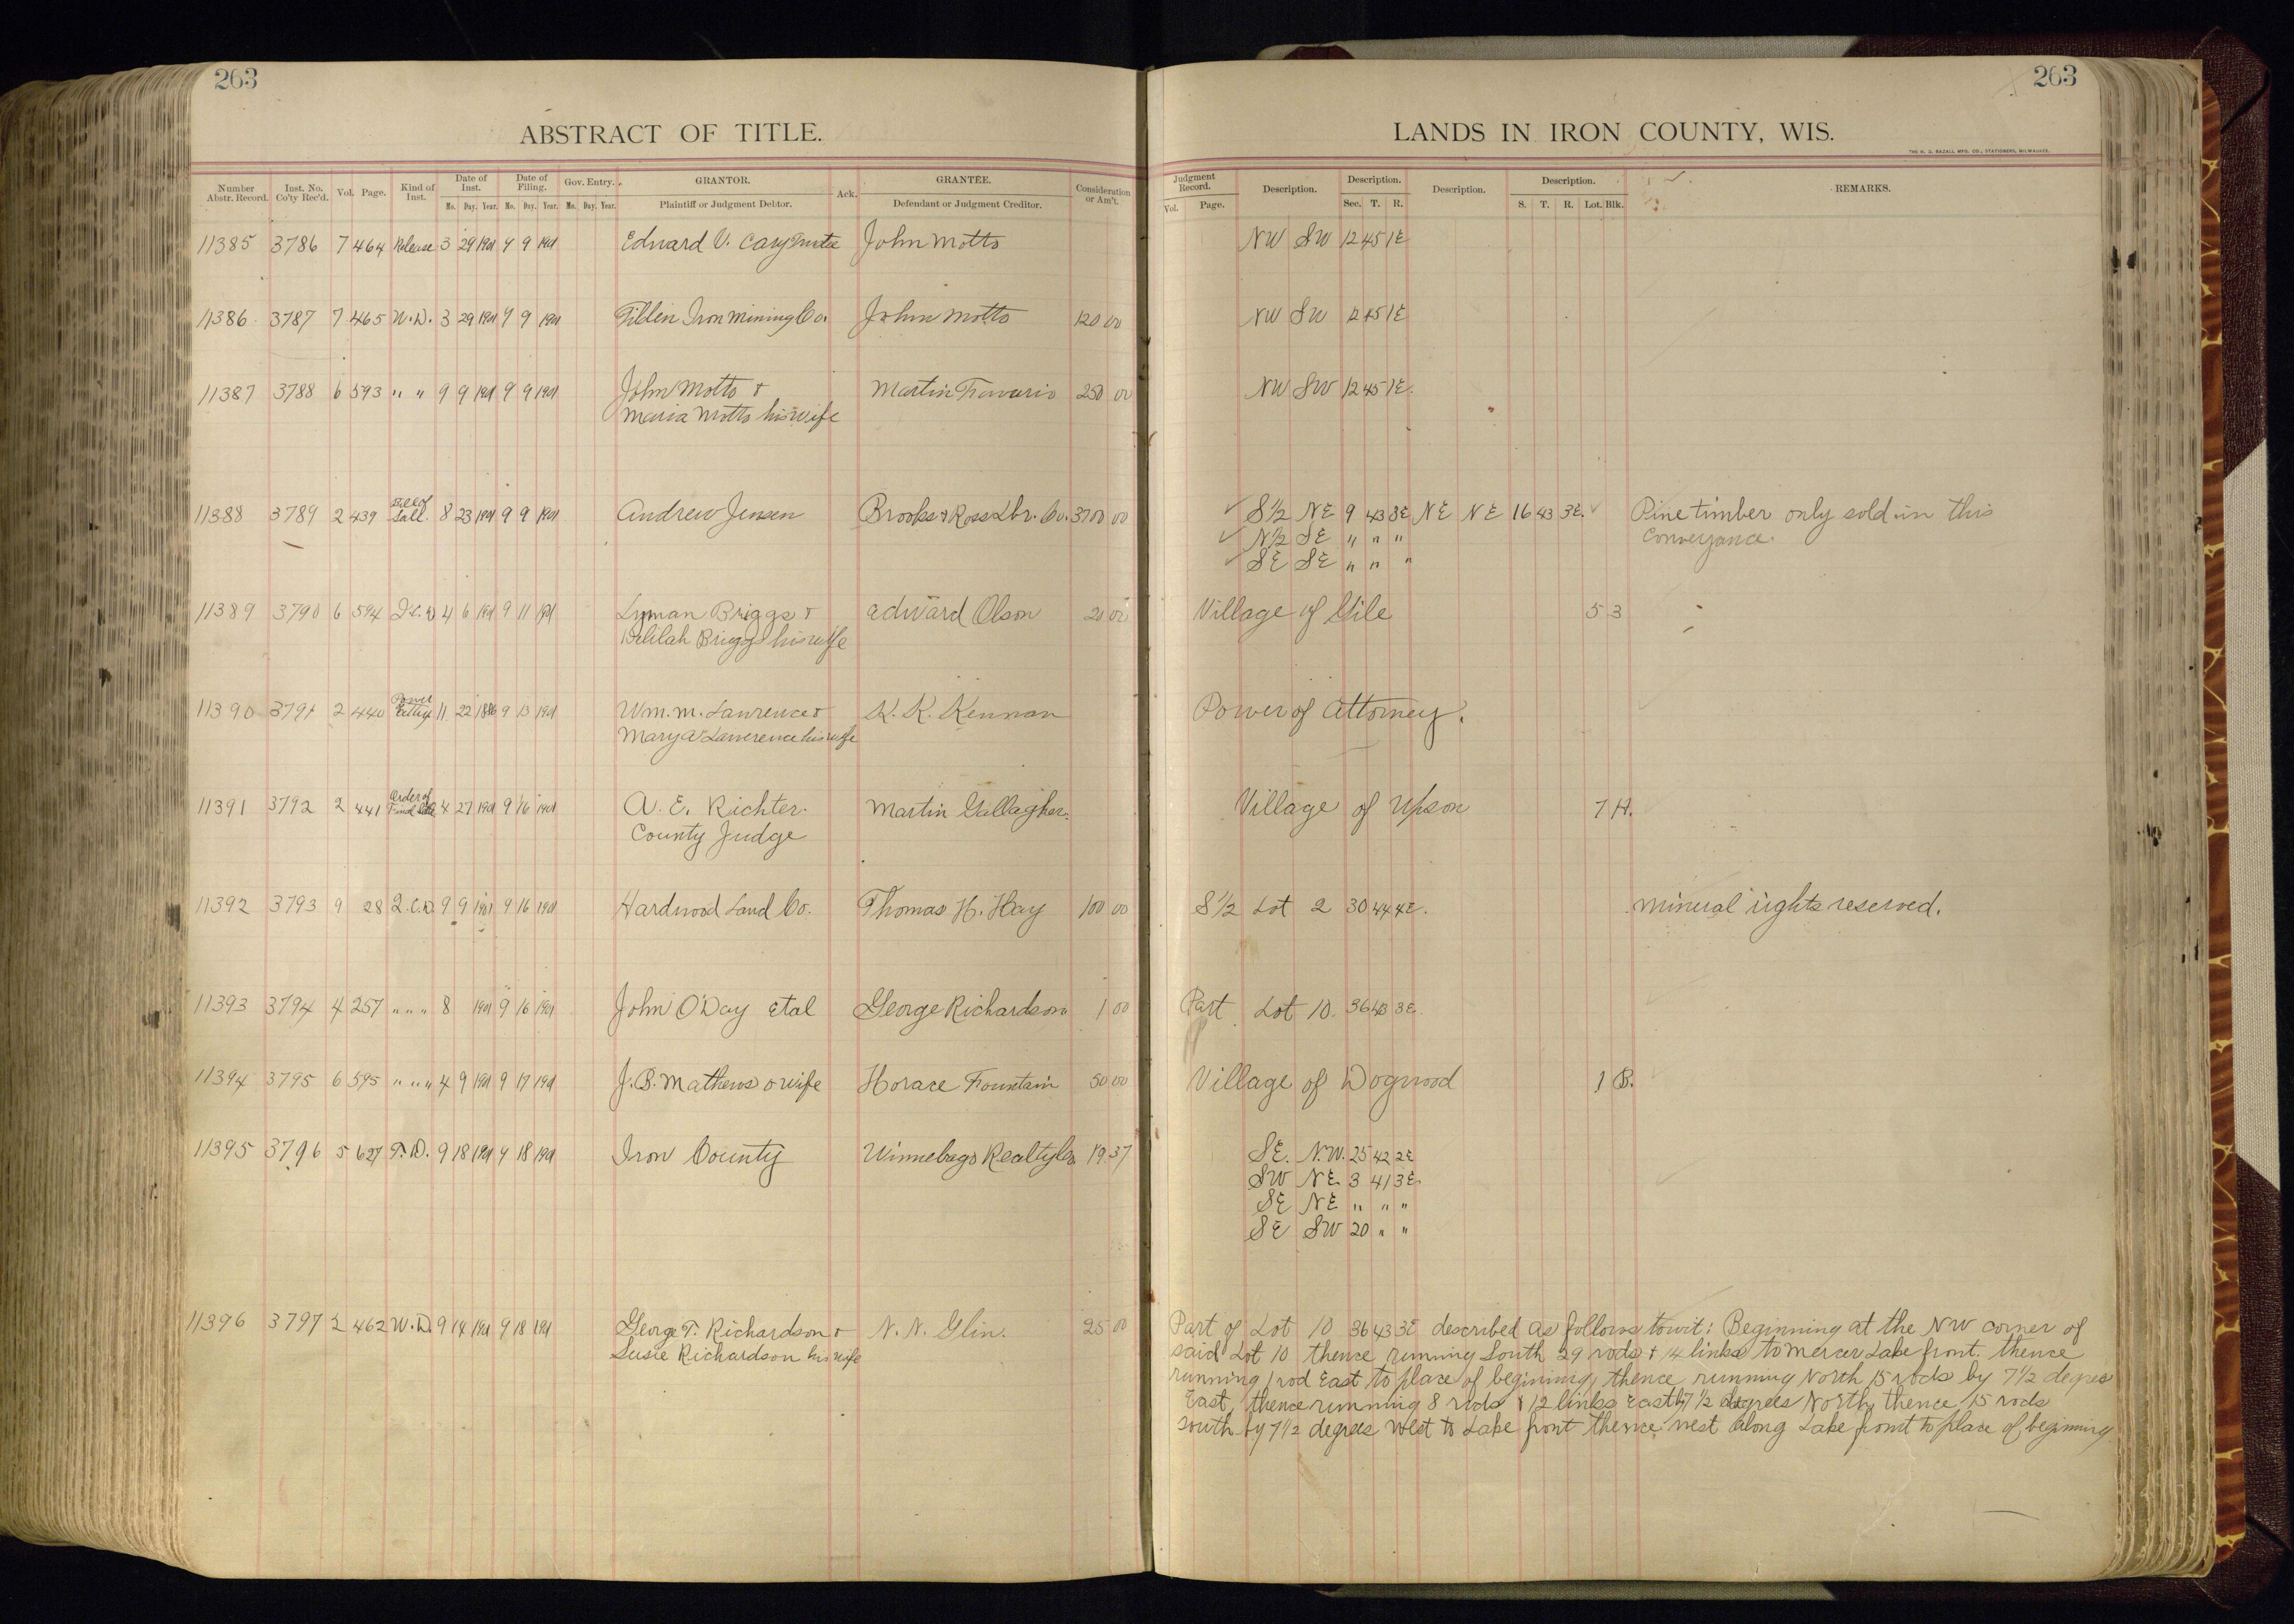 263
263
ABSTRACT OF TITLE.
LANDS IN IRON COUNTY, WIS.
THE H. G. RAZALL MFG. CO., STATIONERS, MILWAUKEE.
Number Abstr. Record. Inst. No. Co'ty Rec'd. Vol. Page. Kind of Inst. Date of Inst. Mo. Day. Year. Date of Filing. Mo. Day. Year. Gov. Entry. Mo. Day. Year. GRANTOR. Plaintiff or Judgment Debtor. Ack. GRANTEE. Defendant or Judgment Creditor. Consideration or Am't.
Judgment Record. Vol. Page. Description. Description. Sec. T. R. Description. Description. S. T. R. Lot. Blk. REMARKS.
11385 3786 7 464 Release 3 29 1901 9 9 1901 Edward V. Cary Trustee John Motto NW SW 12 45 1E
11386 3787 7 465 W.D. 3 29 1901 9 9 1901 Tilden Iron Mining Co. John Motto 120 00 NW SW 12 45 1E
11387 3788 6 593 " " 9 9 1901 9 9 1901 John Motto & Martin 250 00 NW SW 12 45 1E.
Maria Motto his wife
11388 3789 2 439 Bill of Sale. 8 23 1901 9 9 1901 Andrew Jensen Brooks & Ross Lbr. Co. 3700 00 S½ NE 9 43 3E NE NE 16 43 3E. Pine timber only sold in this
N½ SE " " " Conveyance.
SE SE " " "
11389 3790 6 594 2.C.D 4 6 1901 9 11 1901 Lyman Briggs & Edward Olson 20 00 Village of Gile 5 3
Delilah Briggs his wife
11390 3791 2 440 Power 11 22 1886 9 13 1901 Wm. M. Lawrence & K. K. Kennan Power of Attorney.
Mary A Lawrence his wife
11391 3792 2 441 Order of Final 4 27 1901 9 16 1901 A. E. Richter. Martin Gallagher. Village of Upson 7 H.
County Judge
11392 3793 9 28 2.C.D. 9 9 1901 9 16 1901 Hardwood Land Co. Thomas H. Hay 100 00 S½ Lot 2 30 44 4E. Mineral rights reserved.
11393 3794 4 257 " " " 8 1901 9 16 1901 John O'Day Etal George Richardson 1 00 Part Lot 10. 36 43 3E.
11394 3795 6 595 " " " 4 9 1901 9 17 1901 J. B. Mathews & wife Horace Fountain 50 00 Village of Dogwood 1 B.
11395 3796 5 627 T.D. 9 18 1901 9 18 1901 Iron County Winnebago Realty Co. 19 37 SE. N.W. 25 42 2E
SW NE 3 41 3E.
SE NE " " "
SE SW 20 " "
11396 3797 2 462 W.D. 9 14 1901 9 18 1901 George T. Richardson & N. N. Glin. 25 00 Part of Lot 10 36 43 3E described as follows towit: Beginning at the NW corner of
Susie Richardson his wife said Lot 10 thence running South 29 rods & 14 links to Mercer Lake front. thence
running 1 rod East to place of beginning, thence running North 15 rods by 7½ degrees
East, thence running 8 rods & 12 links East by 7½ degrees North, thence 15 rods
south by 7½ degrees west to Lake front thence west along Lake front to place of beginning